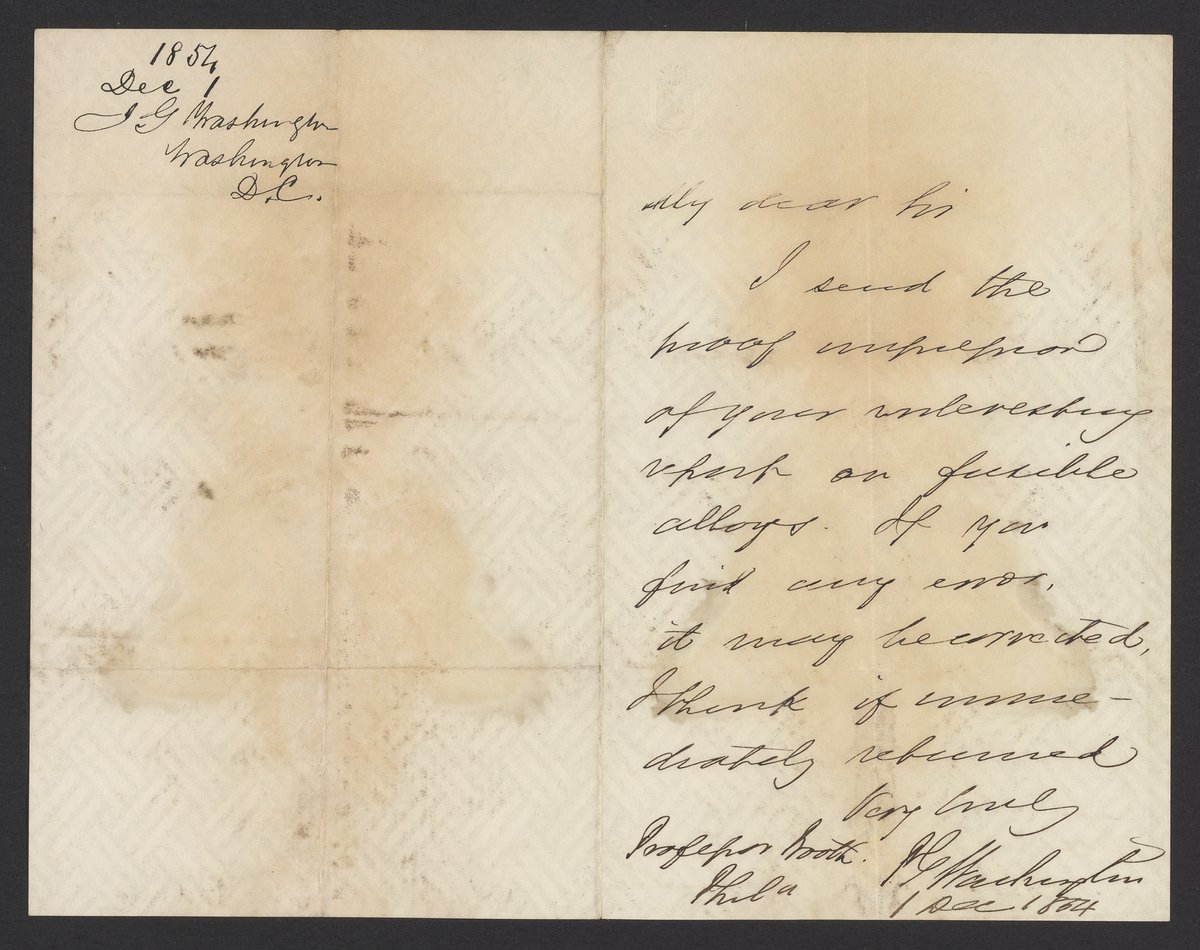 1854
Dec 1
J G Washington
Washington
D.C.
My dear Sir
I send the
proof impression
of your interesting
report on fusible
alloys. If you
find any error,
it may be corrected,
I think if imme-
diately returned
Very truly
Professor Booth.
Phila
PG Washington
1 Dec 1854